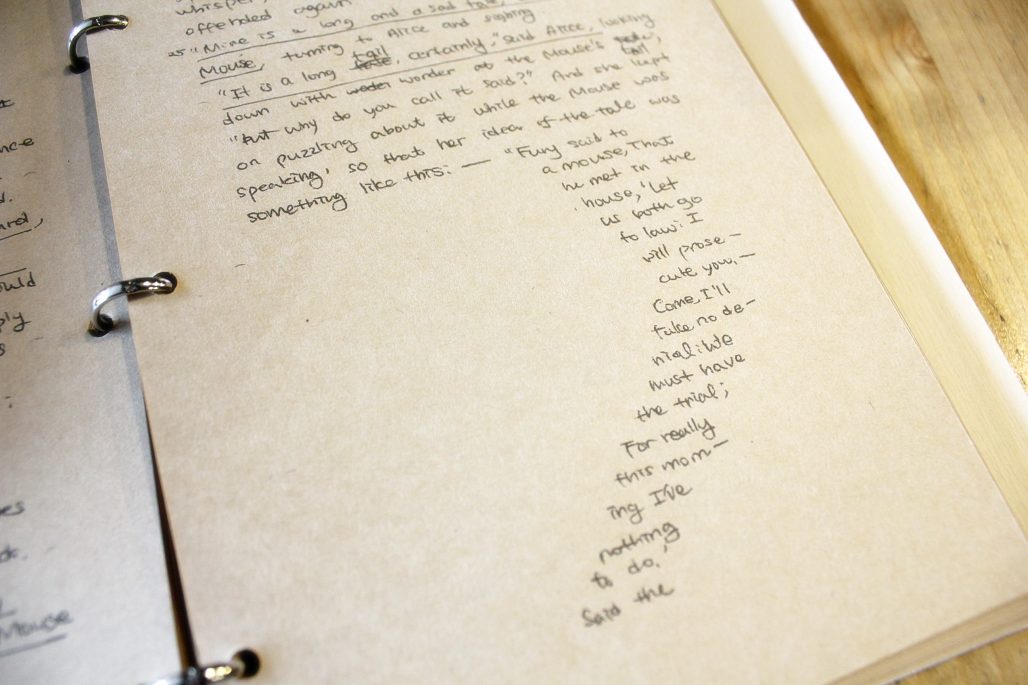 whisper,
offended again
"Mine is a long and a sad tale,
Mouse, turning to Alice and sighing
"It is a long tail, certainly," said Alice, looking
down with wonder at the Mouse's tail,
"but why do you call it said?" And she kept
on puzzling about it while the Mouse was
speaking, so that her idea of the tale was
something like this: — "Fury said to
a mouse, That
he met in the
house, 'Let
us both go
to law: I
will prose-
cute you, —
Come, I'll
take no de-
nial: We
must have
the trial;
For really
this morn-
ing I've
nothing
to do.'
Said the
Mouse